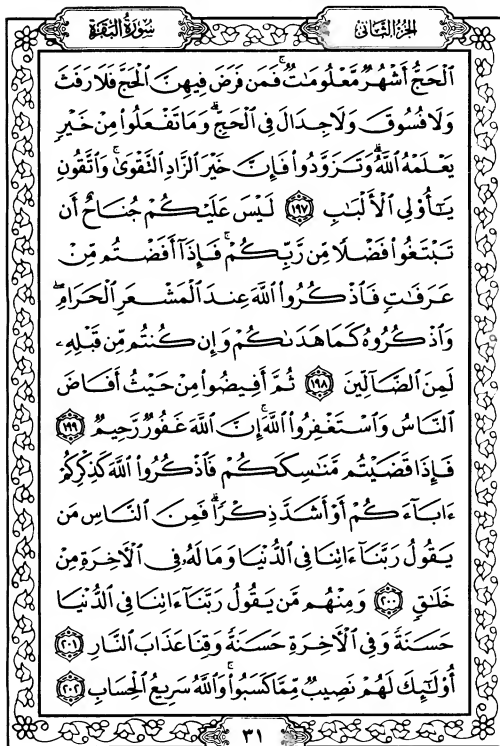 الجزء الثاني
سورة البقرة
ٱلۡحَجُّ أَشۡهُرٞ مَّعۡلُومَٰتٞۚ فَمَن فَرَضَ فِيهِنَّ ٱلۡحَجَّ فَلَا رَفَثَ
وَلَا فُسُوقَ وَلَا جِدَالَ فِي ٱلۡحَجِّۗ وَمَا تَفۡعَلُواْ مِنۡ خَيۡرٖ
يَعۡلَمۡهُ ٱللَّهُۗ وَتَزَوَّدُواْ فَإِنَّ خَيۡرَ ٱلزَّادِ ٱلتَّقۡوَىٰۚ وَٱتَّقُونِ
يَٰٓأُوْلِي ٱلۡأَلۡبَٰبِ ١٩٧ لَيۡسَ عَلَيۡكُمۡ جُنَاحٌ أَن
تَبۡتَغُواْ فَضۡلٗا مِّن رَّبِّكُمۡۚ فَإِذَآ أَفَضۡتُم مِّنۡ
عَرَفَٰتٖ فَٱذۡكُرُواْ ٱللَّهَ عِندَ ٱلۡمَشۡعَرِ ٱلۡحَرَامِۖ
وَٱذۡكُرُوهُ كَمَا هَدَىٰكُمۡ وَإِن كُنتُم مِّن قَبۡلِهِۦ
لَمِنَ ٱلضَّآلِّينَ ١٩٨ ثُمَّ أَفِيضُواْ مِنۡ حَيۡثُ أَفَاضَ
ٱلنَّاسُ وَٱسۡتَغۡفِرُواْ ٱللَّهَۚ إِنَّ ٱللَّهَ غَفُورٞ رَّحِيمٞ ١٩٩
فَإِذَا قَضَيۡتُم مَّنَٰسِكَكُمۡ فَٱذۡكُرُواْ ٱللَّهَ كَذِكۡرِكُمۡ
ءَابَآءَكُمۡ أَوۡ أَشَدَّ ذِكۡرٗاۗ فَمِنَ ٱلنَّاسِ مَن
يَقُولُ رَبَّنَآ ءَاتِنَا فِي ٱلدُّنۡيَا وَمَا لَهُۥ فِي ٱلۡأٓخِرَةِ مِنۡ
خَلَٰقٖ ٢٠٠ وَمِنۡهُم مَّن يَقُولُ رَبَّنَآ ءَاتِنَا فِي ٱلدُّنۡيَا
حَسَنَةٗ وَفِي ٱلۡأٓخِرَةِ حَسَنَةٗ وَقِنَا عَذَابَ ٱلنَّارِ ٢٠١
أُوْلَٰٓئِكَ لَهُمۡ نَصِيبٞ مِّمَّا كَسَبُواْۚ وَٱللَّهُ سَرِيعُ ٱلۡحِسَابِ ٢٠٢
٣١